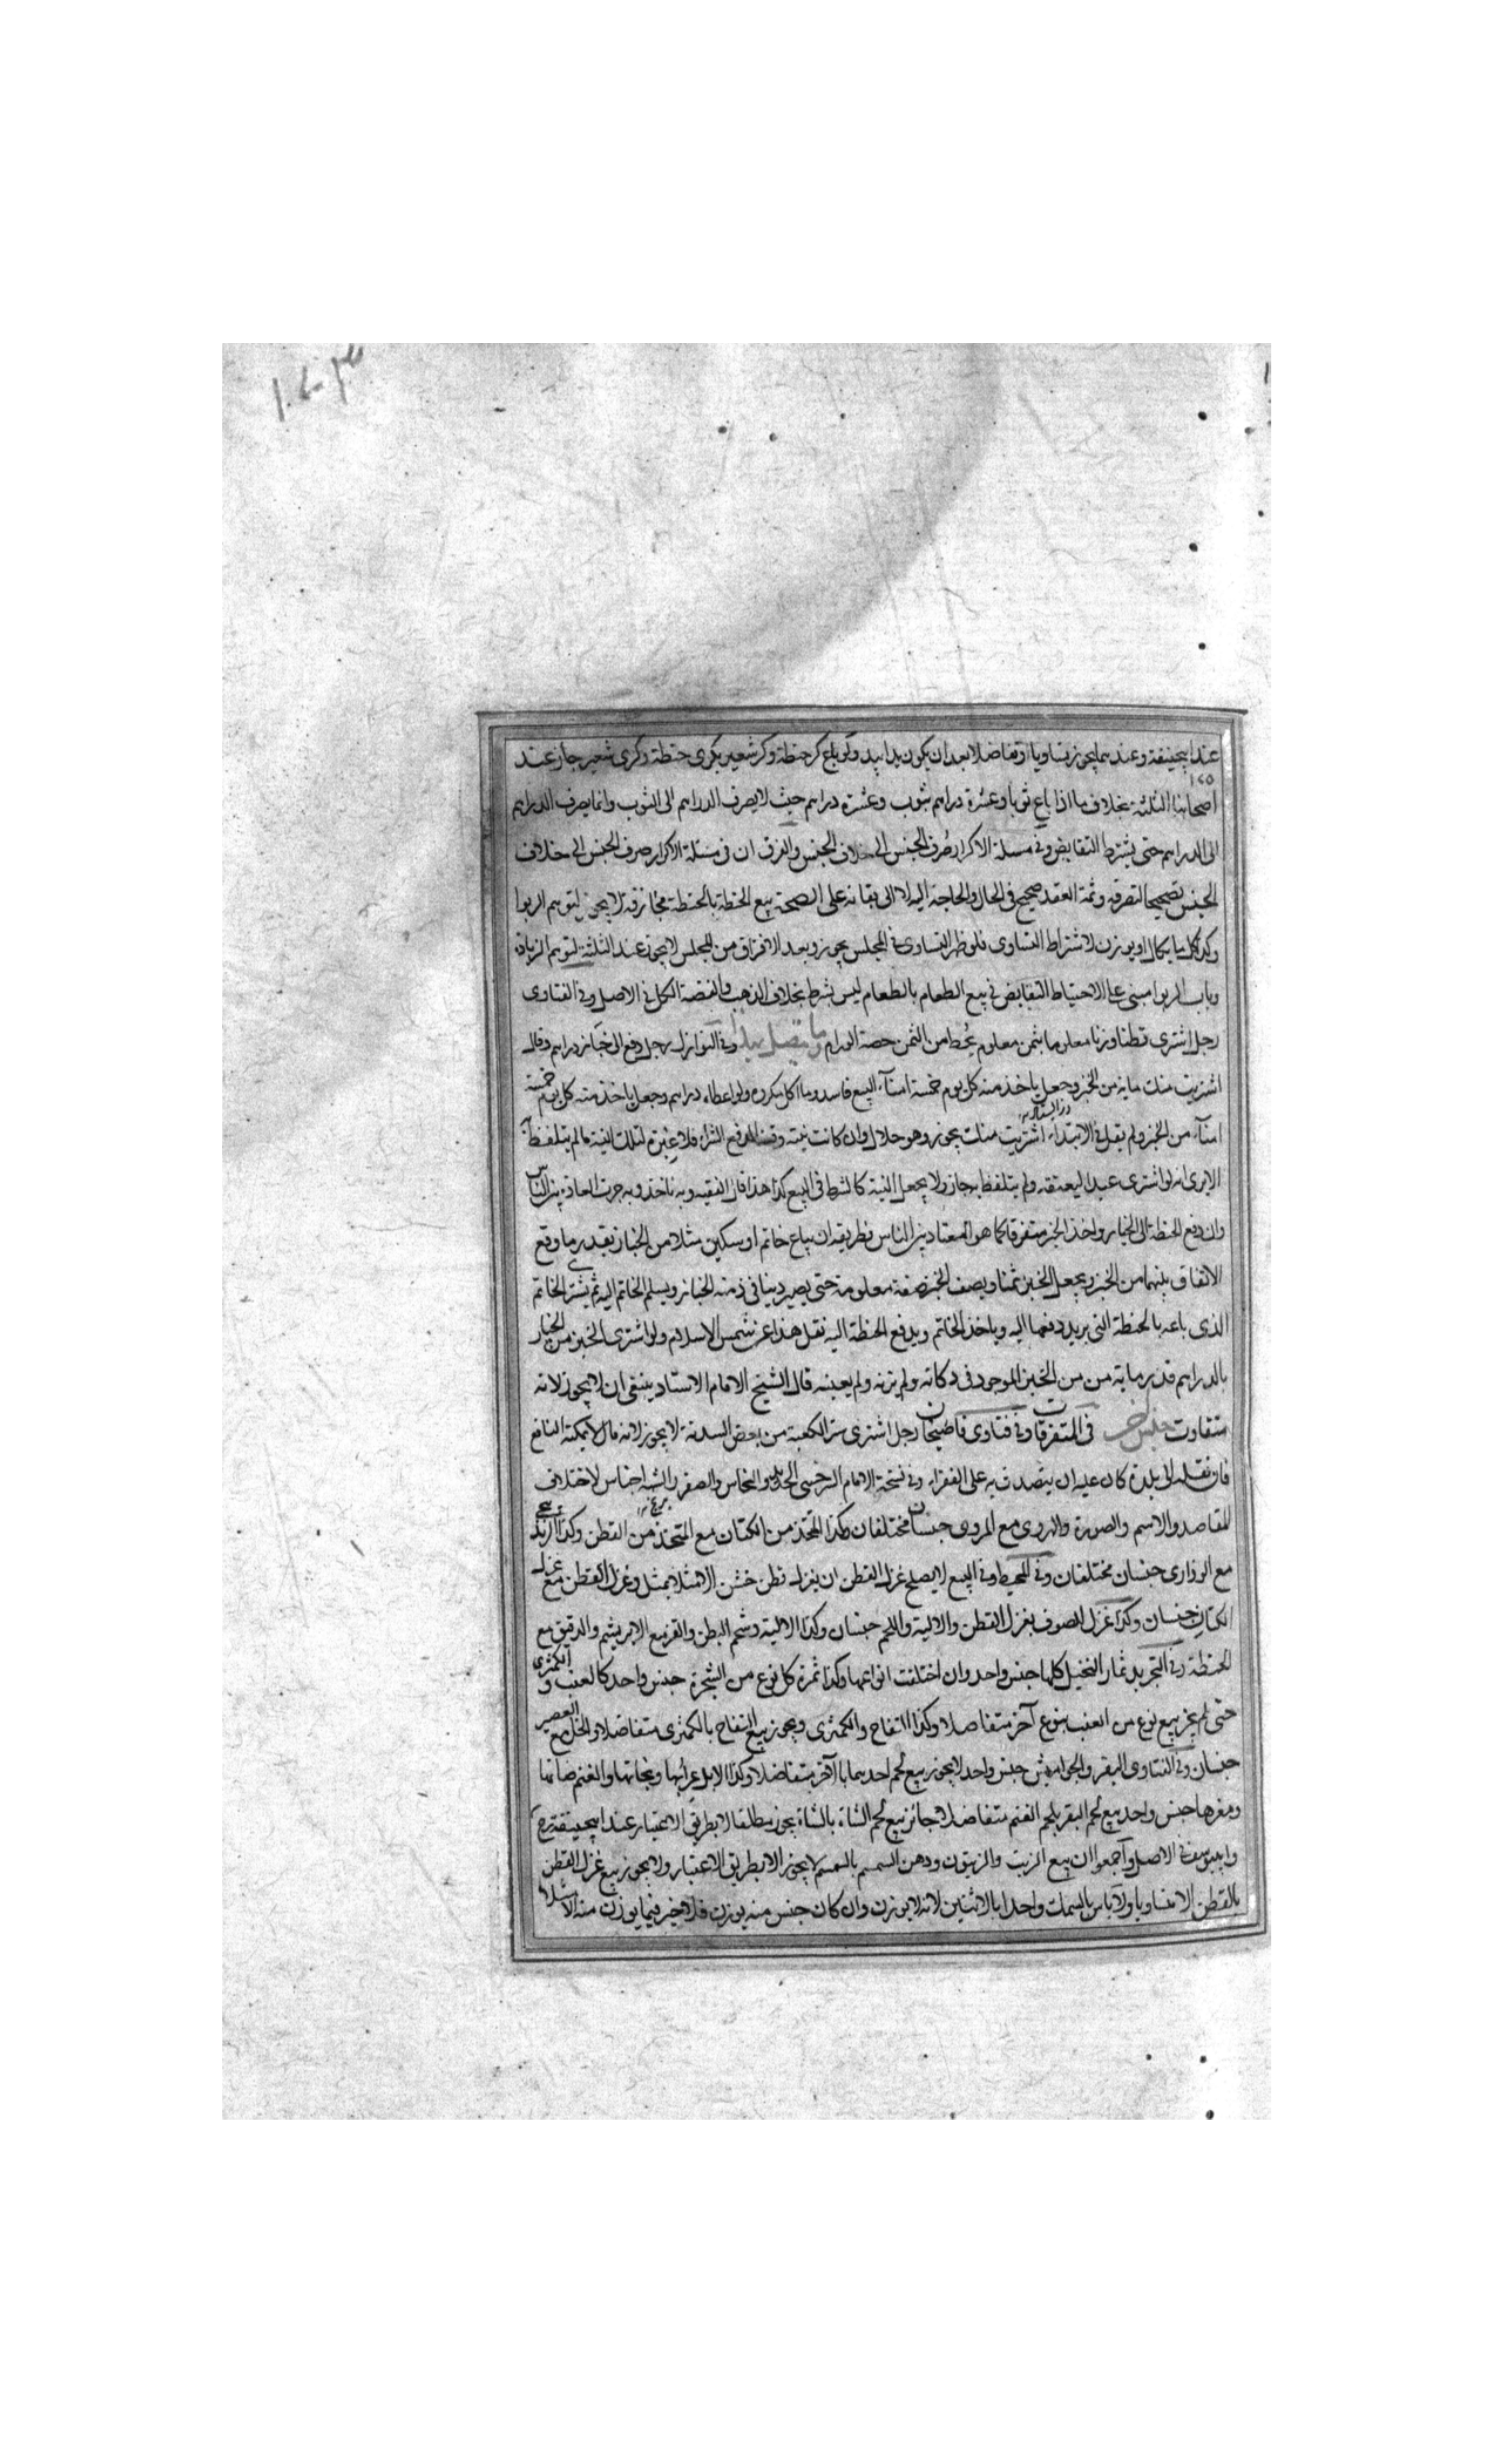 عند ابيحنيفة وعندهما يجوز متساويا او متفاضلا بعد ان يكون يدا بيد ولو باع كر حنطة وكر شعير بكرى حنطة وكرى شعير جاز عند
١٧٥
اصحابنا الثلثة بخلاف ما اذا باع ثوبا وعشرة دراهم بثوب وعشرة دراهم حيث لا يصرف الدراهم الى الثوب وانما يصرف الدراهم
الى الدراهم حتى يشترط التقابض وفى مسئلة الاكرار صُرف الجنس الى خلاف الجنس والفرق ان فى مسئلة الاكرار صرف الجنس الى خلاف
الجنس تصحيحا لتصرفه وثمة العقد صحيح فى الحال والحاجة اليه الا الى بقائه على الصحة بيع الحنطة بالحنطة مجازفة لا يجوز لتوهم الربوا
وكذا كل ما يكال او يوزن لاشتراط التساوى فلو ظهر التساوى فى المجلس يجوز وبعد الافتراق من المجلس لا يجوز عند الثلثة لتوهم الزيادة
وباب الربوا مبنى على الاحتياط التقابض فى بيع الطعام بالطعام ليس بشرط بخلاف الذهب والفضة الكل فى الاصل وفى الفتاوى
رجل اشترى قطنا وزنا معلوما بثمن معلوم يُحط من الثمن حصة الورام وما يتصل بهذا وفى النوازل رجل دفع الى خباز دراهم وقال
اشتريت منك ماية من الخبز وجعل ياخذ منه كل يوم خمسة امناء البيع فاسد وما اكل مكروه ولو اعطاه دراهم وجعل ياخذ منه كل يوم خمسة
امناء من الخبز ولم يقل فى الابتداء اشتريت منك يجوز وهو حلال وان كانت نيته وقت الدفع الشراء فلا عبرة لتلك النية ما لم يتلفظ به
الا يرى انه لو اشترى عبدا ليعتقه ولم يتلفظ به جاز ولا يجعل النية كالشرط فى البيع كذا هذا قال الفقيه وبه ناخذ وبه جرت العادة بين الناس
وان دفع الحنطة الى الخباز واخذ الخبز متفرقا كما هو المعتاد بين الناس فطريقه ان يباع خاتم او سكين مثلا من الخباز بقدر ما وقع
الاتفاق بينهما من الخبز ويجعل الخبز ثمنا ويصف الخبز بصفة معلومة حتى يصير دينا فى ذمة الخباز ويسلم الخاتم اليه ثم يشترى الخاتم
الذى باعه بالحنطة التى يريد دفعها اليه وياخذ الخاتم ويدفع الحنطة اليه نقل هذا عن شمس الاسلام ولو اشترى الخبز من الخباز
بالدراهم قدر ماية من من الخبز الموجود فى دكانه ولم يزنه ولم يعينه قال الشيخ الامام الاستاد ينبغى ان لا يجوز لانه
متفاوت جنس آخر فى المتفرقات وفى فتاوى قاضيخان رجل اشترى ستر الكعبة من بعض السدنة لا يجوز لانه مال
فان نقله الى بلدة كان عليه ان يتصدق به على الفقراء وفى نسخة الامام السرخسى الحديد والنحاس والصفر والشبه اجناس لاختلاف
المقاصد والاسم والصورة والهروى مع المروى جنسان مختلفان وكذا المتخذ من الكتان مع المتخذ من القطن وكذا
مع الوزارى جنسان مختلفان وفى المحيط وفى البيع لا يصلح غزل القطن ان يغزل قطن خشن الا مثلا بمثل وغزل القطن مع غزل
الكتان جنسان وكذا غزل الصوف بغزل القطن والالية واللحم جنسان وكذا الالية وشحم البطن والقز مع الابريشم والدقيق مع
الحنطة وفى التجريد ثمار النخيل كلها جنس واحد وان اختلفت انواعها وكذا ثمرة كل نوع من الشجرة جنس واحد كالعنب والكمثرى
حتى لم يجز بيع نوع من العنب بنوع آخر متفاضلا وكذا التفاح والكمثرى ويجوز بيع التفاح بالكمثرى متفاضلا والخل مع العصير
جنسان وفى الفتاوى البقر والجواميش جنس واحد لا يجوز بيع لحم احدهما بالآخر متفاضلا وكذا الابل عرابها وبخاتها والغنم ضانها
ومعزها جنس واحد بيع لحم البقر بلحم الغنم متفاضلا جائز بيع لحم الشاة بالشاة يجوز مطلقا لا بطريق الاعتبار عند ابيحنيفة
وابى يوسف فى الاصل واجمعوا ان بيع الزيت والزيتون ودهن السمسم بالسمسم لا يجوز الا بطريق الاعتبار ولا يجوز بيع غزل القطن
بالقطن الا متساويا ولا باس بالسمك واحدا بالاثنين لانه لا يوزن وان كان جنس منه يوزن فلا خير فيما يوزن منه الا مثلا